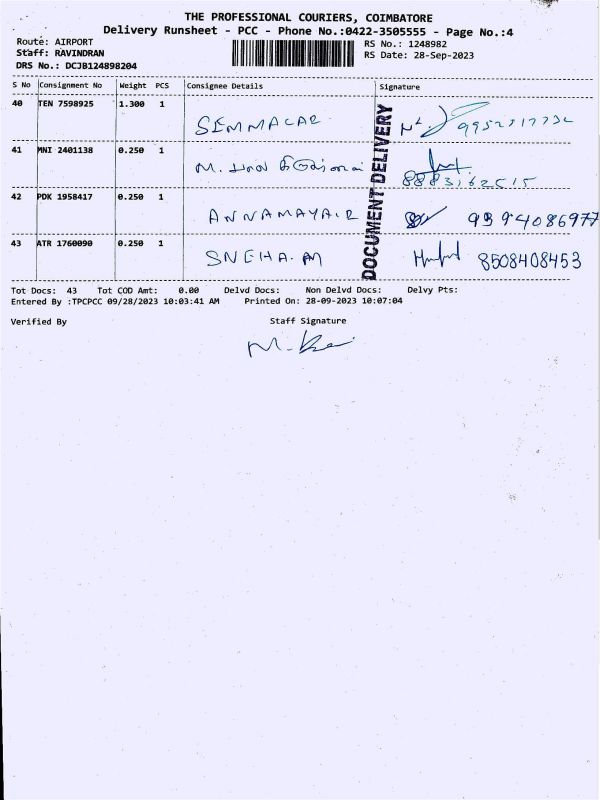 THE PROFESSIONAL COURIERS, COIMBATORE
Delivery Runsheet - PCC - Phone No.:0422-3505555 - Page No.:4
Route: AIRPORT
RS No.: 1248982
Staff: RAVINDRAN
RS Date: 28-Sep-2023
DRS No.: DCJB124898204
S No Consignment No Weight PCS Consignee Details Signature
40 TEN 7598925 1.300 1
SEMMALAR
41 MNI 2401138 0.250 1
M.
8883162515
42 PDK 1958417 0.250 1
ANNAMAYAIR 9394086977
43 ATR 1760090 0.250 1
SNEHA.M 8508408453
DOCUMENT DELIVERY
Tot Docs: 43 Tot COD Amt: 0.00 Delvd Docs: Non Delvd Docs: Delvy Pts:
Entered By :TPCPCC 09/28/2023 10:03:41 AM Printed On: 28-09-2023 10:07:04
Verified By Staff Signature